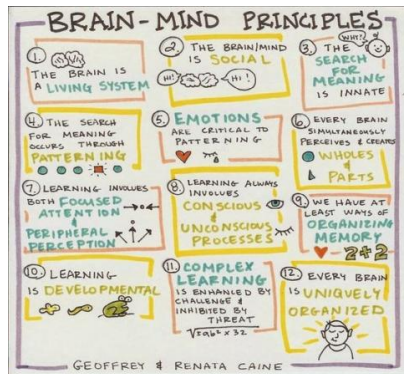 BRAIN-MIND PRINCIPLES
1.
THE BRAIN IS
A LIVING SYSTEM
2. THE BRAIN/MIND
IS SOCIAL
HI! HI!
3. THE WHY?
SEARCH
FOR
MEANING
IS INNATE
4. THE SEARCH
FOR MEANING
OCCURS THROUGH
PATTERNING
5. EMOTIONS
ARE CRITICAL TO
PATTERNING
6. EVERY BRAIN
SIMULTANEOUSLY
PERCEIVES & CREATES
WHOLES
&
PARTS
7. LEARNING INVOLVES
BOTH FOCUSED
ATTENTION
&
PERIPHERAL
PERCEPTION
8. LEARNING ALWAYS
INVOLVES
CONSCIOUS
&
UNCONSCIOUS
PROCESSES
9. WE HAVE AT
LEAST WAYS OF
ORGANIZING
MEMORY
2+2
10. LEARNING
IS DEVELOPMENTAL
11. COMPLEX
LEARNING
IS ENHANCED BY
CHALLENGE &
INHIBITED BY
THREAT
12. EVERY BRAIN
IS UNIQUELY
ORGANIZED
GEOFFREY & RENATA CAINE